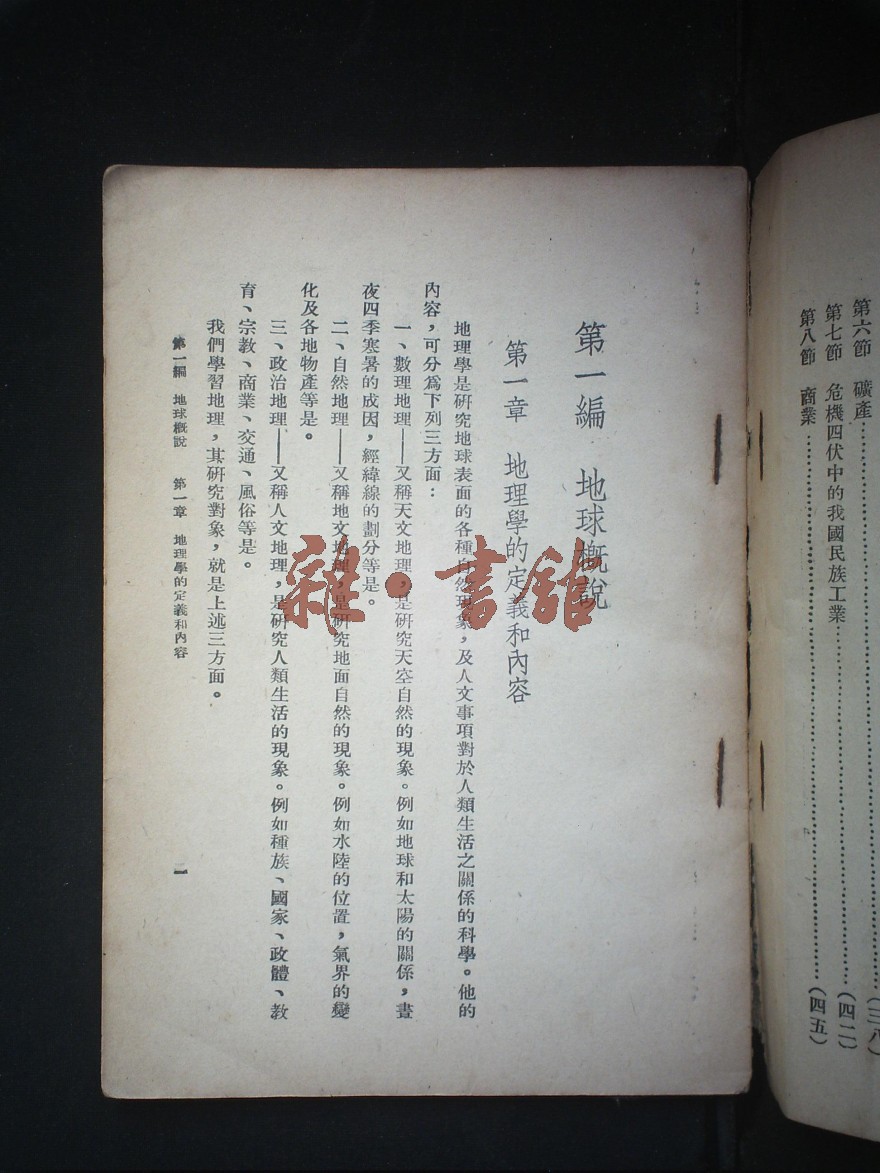 第六節　礦產……(三八)
第七節　危機四伏中的我國民族工業……(四二)
第八節　商業……(四五)
第一編　地球概說
第一章　地理學的定義和內容
地理學是研究地球表面的各種自然現象，及人文事項對於人類生活之關係的科學。他的
內容，可分爲下列三方面：
一、數理地理——又稱天文地理，是研究天空自然的現象。例如地球和太陽的關係，晝
夜四季寒暑的成因，經緯線的劃分等是。
二、自然地理——又稱地文地理，是研究地面自然的現象。例如水陸的位置，氣界的變
化及各地物產等是。
三、政治地理——又稱人文地理，是研究人類生活的現象。例如種族、國家、政體、教
育、宗教、商業、交通、風俗等是。
我們學習地理，其研究對象，就是上述三方面。
第一編　地球概說　第一章　地理學的定義和內容
一
雜·書館